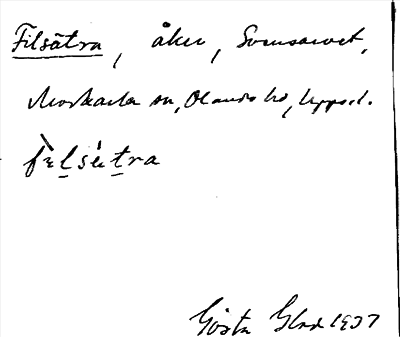 Filsätra, åker, Svensarvet,
Morkarla sn, Olands hd, Uppsl.
Gösta Glad 1937